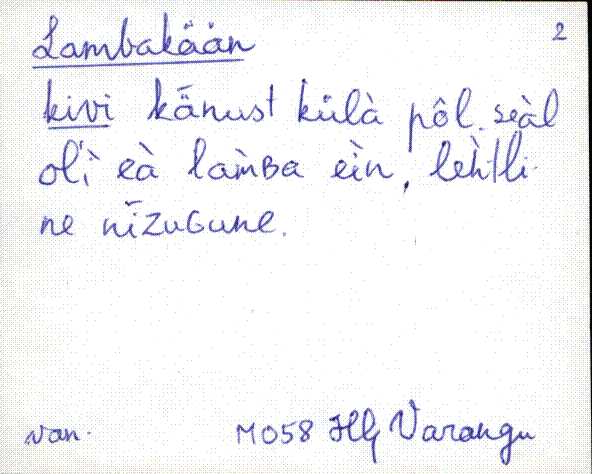 2
Lambakään
kivi känust külà pôl. seàl
ol'ì eà laṁʙa eìn, leh̀tli-
ne nīzuɢune.
van. M058 HLj Varangu